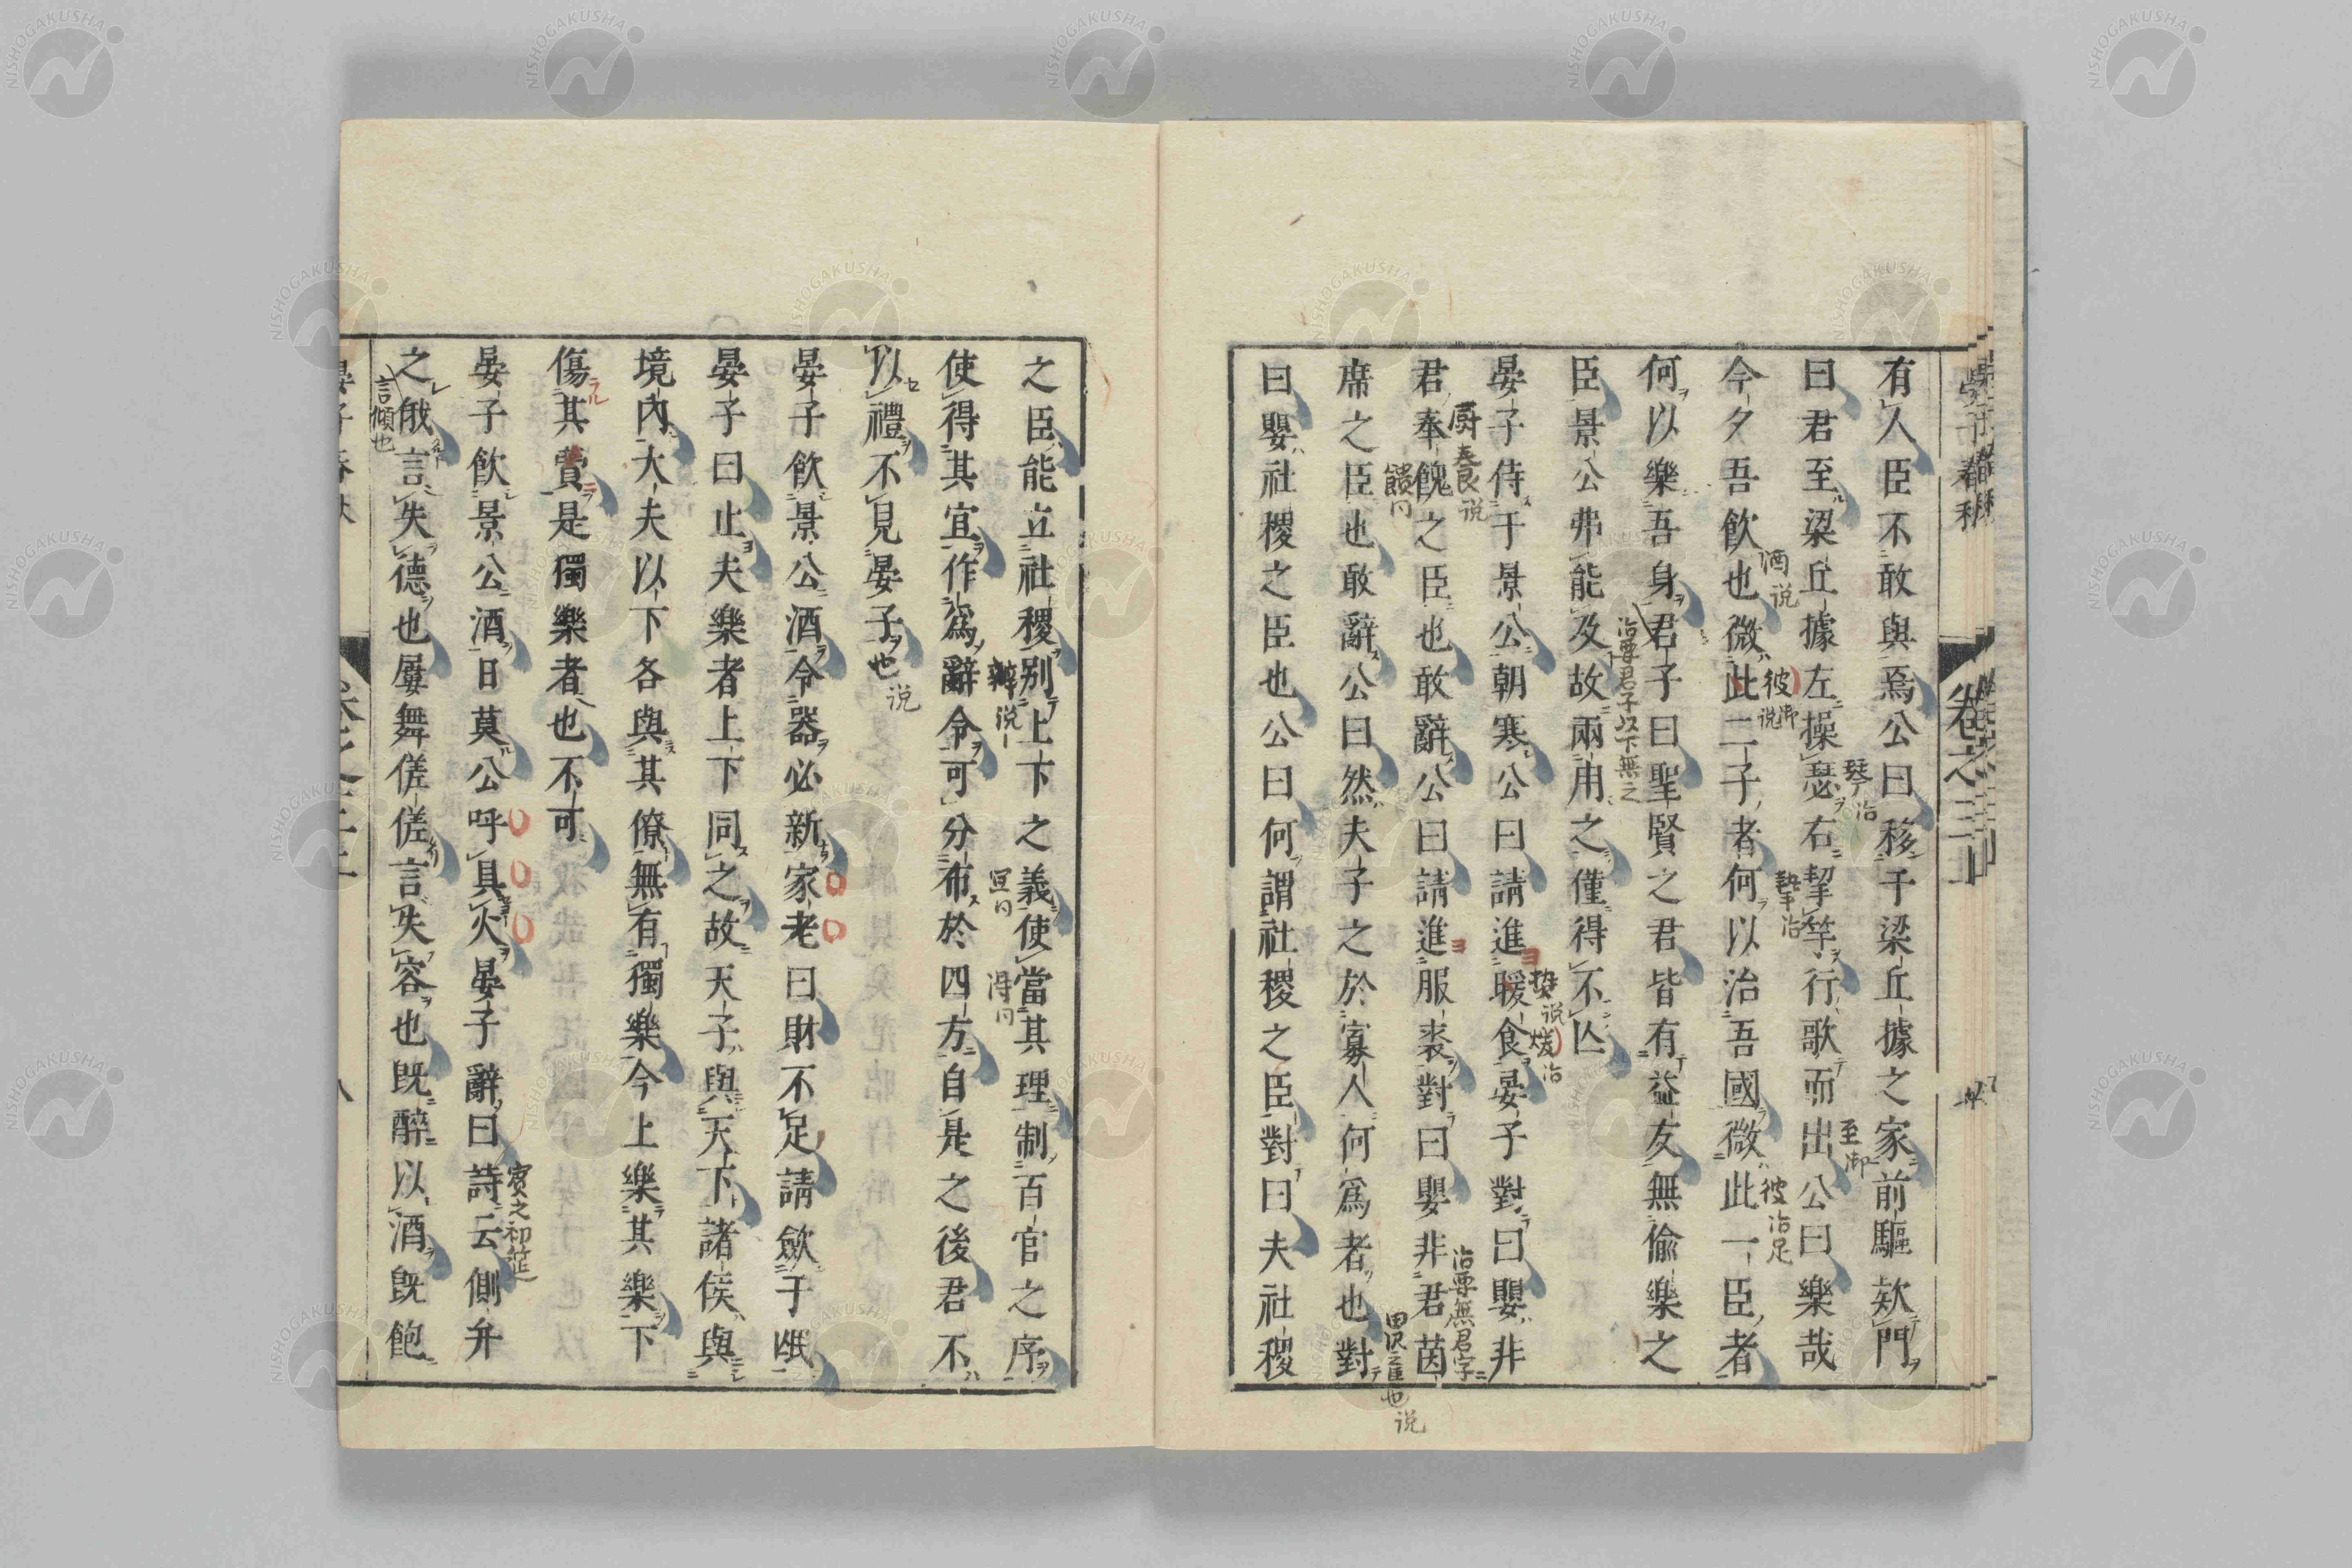 有人臣不敢與焉公曰移于梁丘據之家前驅欵門
曰君至梁丘據左操瑟右挈竽行歌而出公曰樂哉
今夕吾飲也微此二子者何以治吾國微此一臣者
何以樂吾身君子曰聖賢之君皆有益友無偷樂之
臣景公弗能及故兩用之僅得不亾
晏子侍于景公朝寒公曰請進暖食晏子對曰嬰非
君奉餽之臣也敢辭公曰請進服裘對曰嬰非君茵
席之臣也敢辭公曰然夫子之於寡人何爲者也對
曰嬰社稷之臣也公曰何謂社稷之臣對曰夫社稷
之臣能立社稷别上下之義使當其理制百官之序
使得其宜作爲辭令可分布於四方自是之後君不
以禮不見晏子
晏子飲景公酒令器必新家老曰財不足請歛于氓
晏子曰止夫樂者上下同之故天子與天下諸侯與
境內大夫以下各與其僚無有獨樂今上樂其樂下
傷其費是獨樂者也不可
晏子飲景公酒日莫公呼具火晏子辭曰詩云側弁
之俄言失德也屢舞傞傞言失容也既醉以酒既飽
晏子春秋
卷之三
酒 説
彼
琴 治
至
彼 治
治要君子以下無之
厨養 説
治要無君字
也 説
辨 説
宜 同
得 同
賓之初筵
言傾也
NISHOGAKUSHA